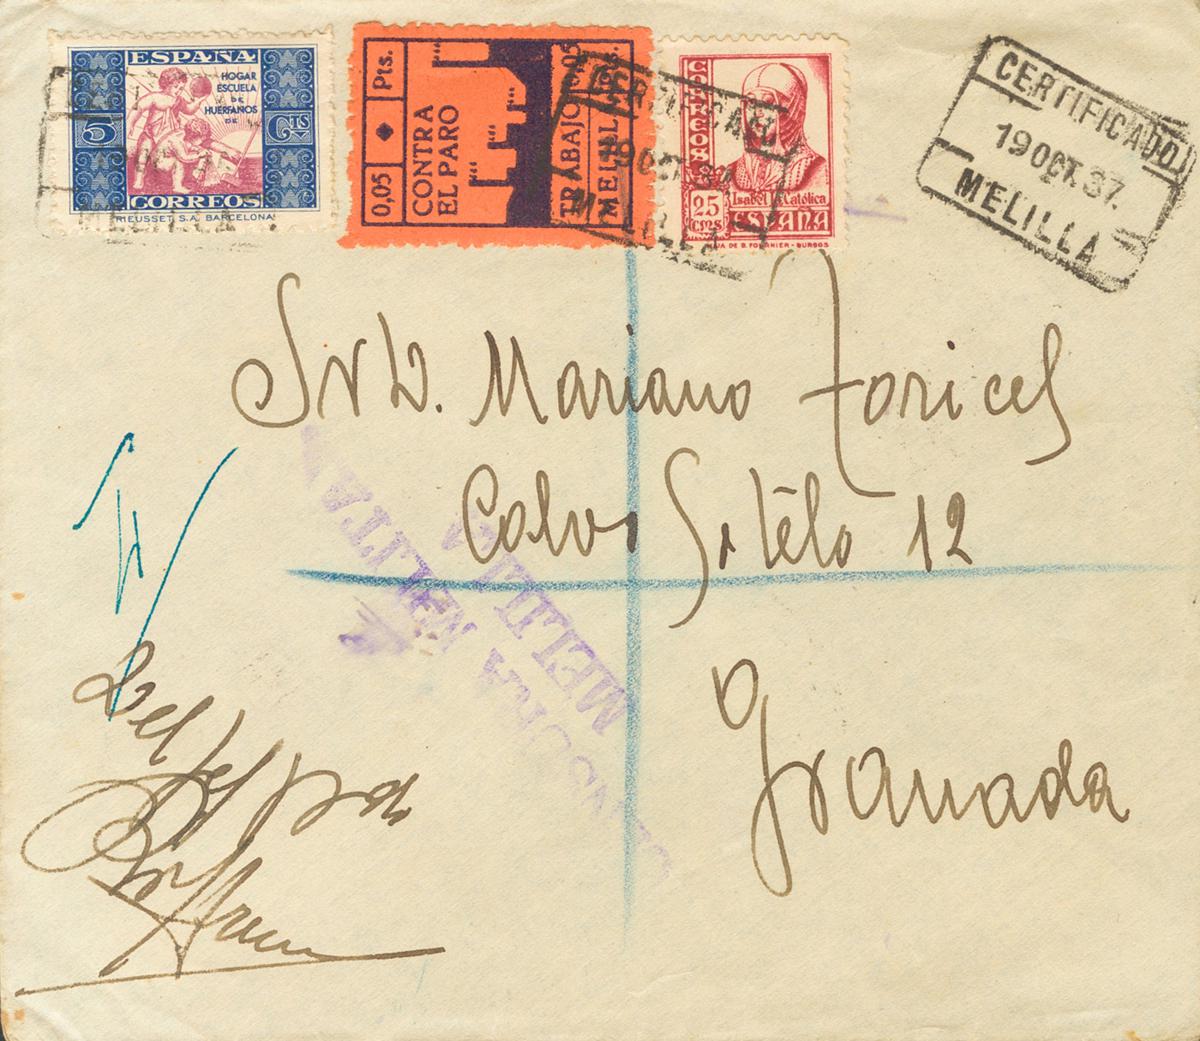 ESPAÑA
HOGAR
ESCUELA
DE
HUERFANOS
DE
5 CTS
CORREOS
RIEUSSET, S.A. BARCELONA
0,05 Pts.
CONTRA
EL PARO
TRABAJO
MELILLA
CORREOS
25
CTMS
Isabel la Católica
ESPAÑA
B. FOURNIER - BURGOS
CERTIFICADO
19 OCT. 37
MELILLA
CERTIFICADO
19 OCT. 37.
MELILLA
Sr D. Mariano
Calvo Sotelo 12
Granada
CENSURA MILITAR
MELILLA